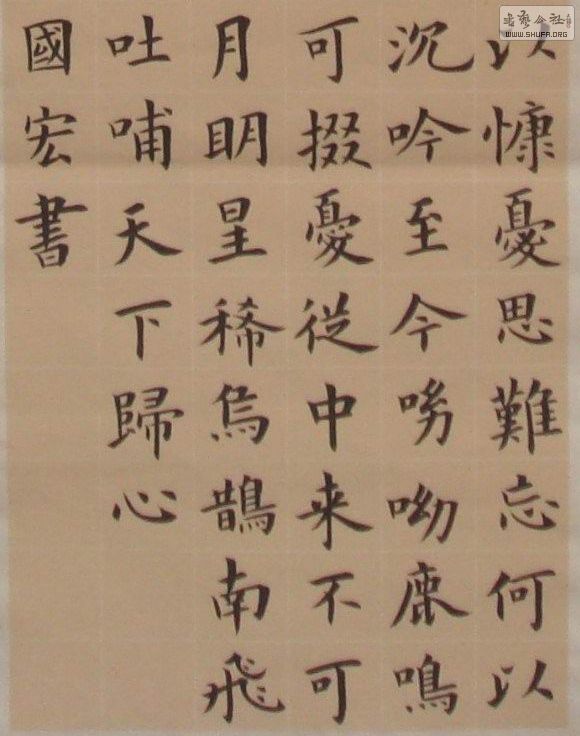 以慷憂思難忘何以
沉吟至今呦呦鹿鳴
可掇憂從中来不可
月明星稀烏鵲南飛
吐哺天下歸心
國宏書
書藝公社
WWW.SHUFA.ORG